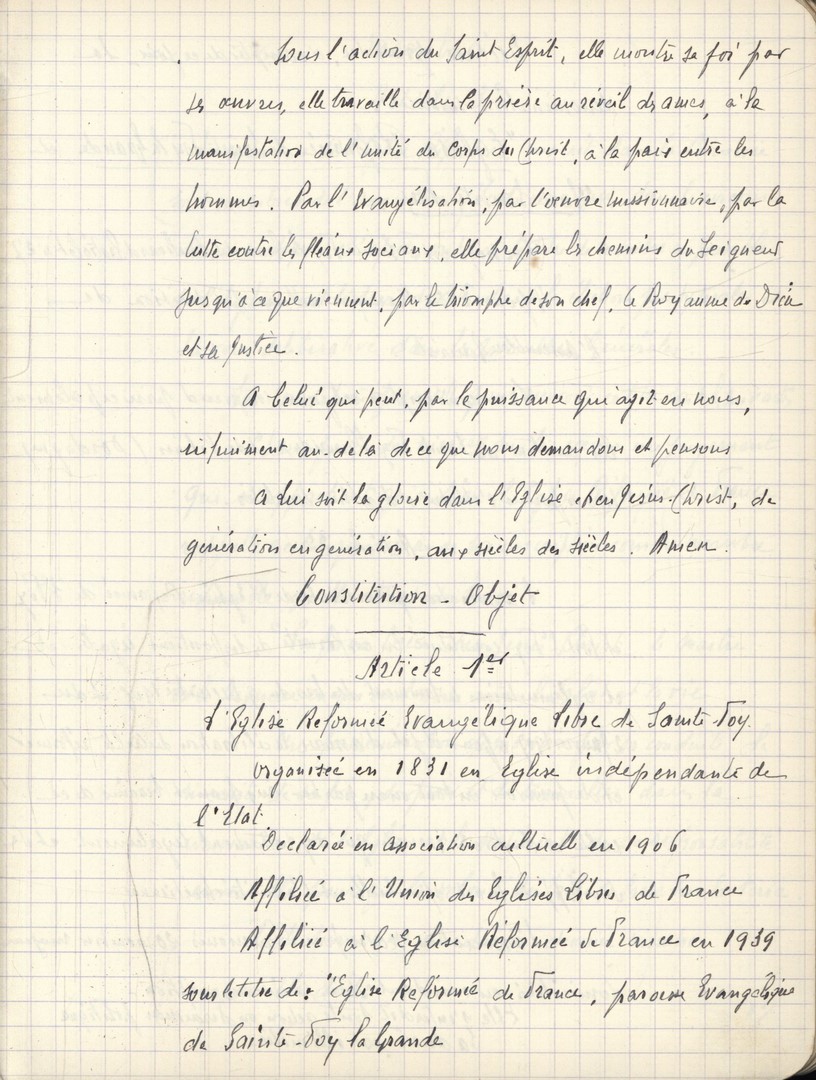 Sous l'action du Saint Esprit, elle montre sa foi par
ses œuvres, elle travaille dans la prière au réveil des ames, à la
manifestation de l'unité du Corps du Christ, à la paix entre les
hommes. Par l'Evangélisation, par l'œuvre missionnaire, par la
lutte contre les fléaux sociaux, elle prépare les chemins du Seigneur
jusqu'à ce que viennent, par le triomphe de son chef, le Royaume de Dieu
et sa Justice.
A Celui qui peut, par la puissance qui agit en nous,
infiniment au-delà de ce que nous demandons et pensons
A Lui soit la gloire dans l'Eglise et en Jésus-Christ, de
génération en génération, aux siècles des siècles. Amen.
Constitution - Objet
Article 1er
L'Eglise Reformée Evangélique Libre de Sainte-Foy
organisée en 1831 en Eglise indépendante de
l'Etat.
Declarée en association cultuelle en 1906
Affiliée à l'Union des Eglises Libres de France
Affiliée à l'Eglise Réformée de France en 1939
sous le titre de : "Eglise Reformée de France, paroisse Evangélique
de Sainte-Foy la Grande